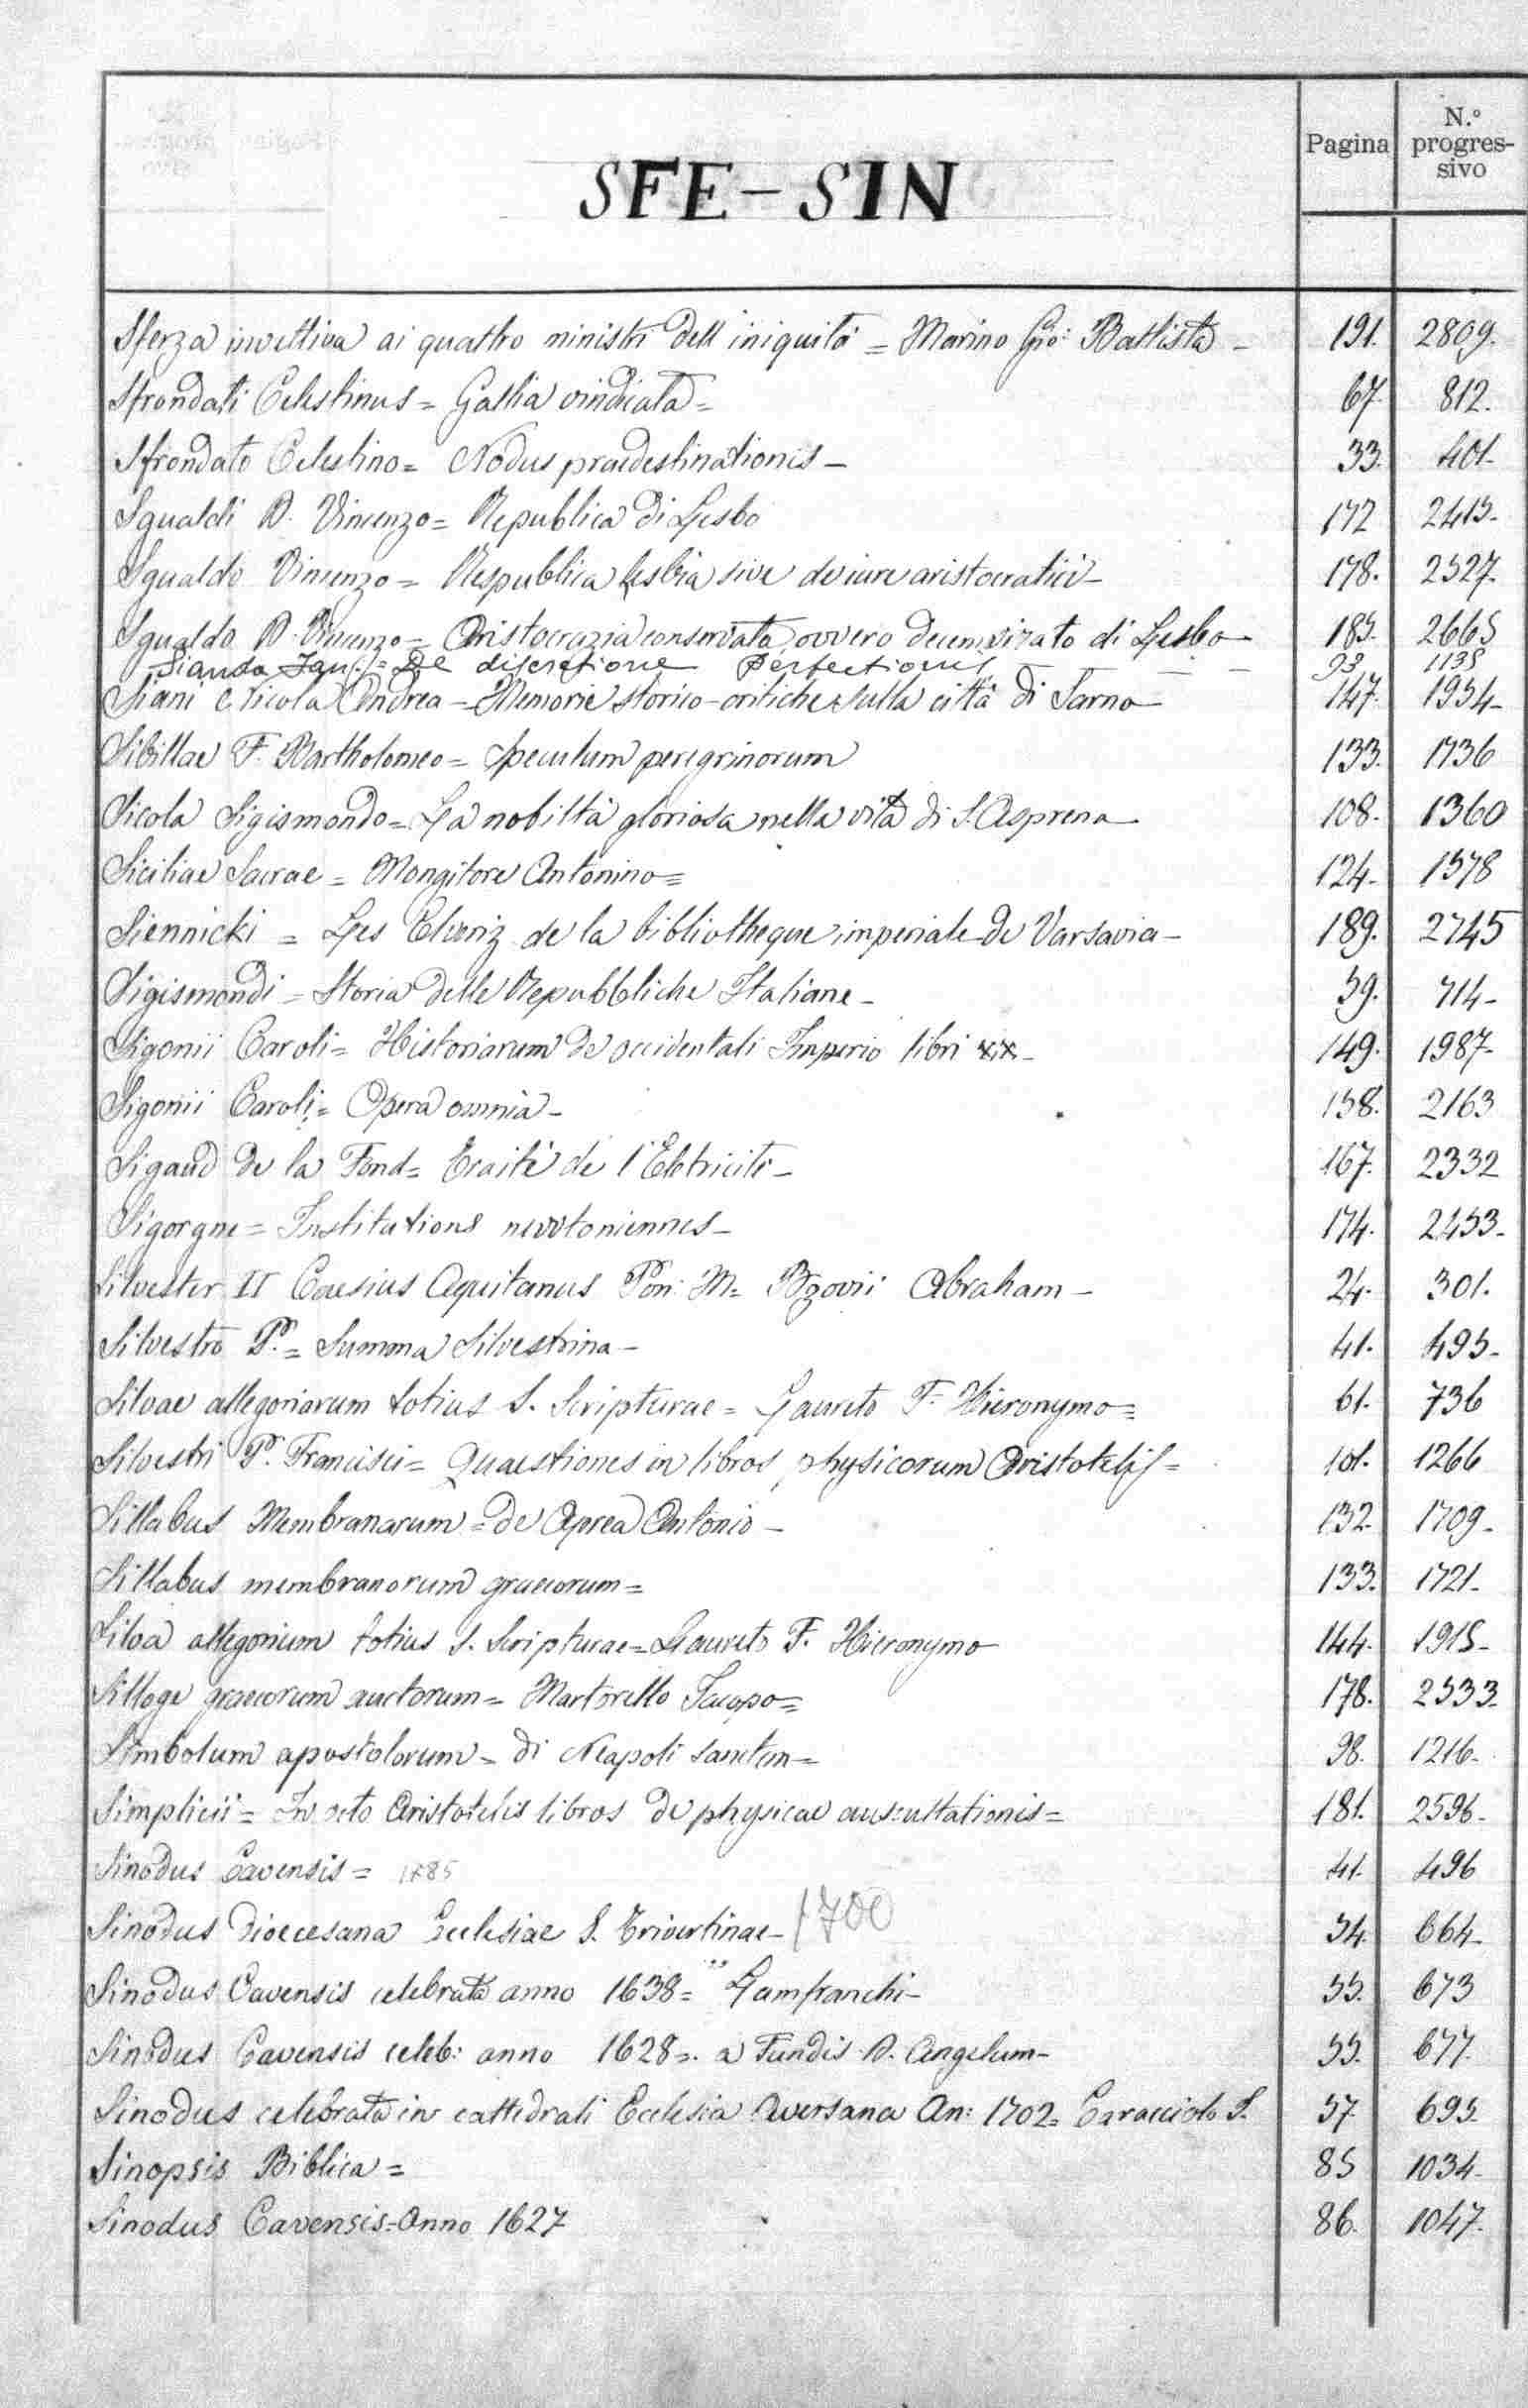 Pagina N.º progres-sivo
SFE - SIN
Sferza invettiva ai quattro ministri dell iniquità = Marino Gio: Battista - 191. 2809.
Sfrondati Celestinus = Gallia vindicata = 67. 812.
Sfrondato Celestino = Nodus praedestinationis - 33. 401-
Sgualdi D. Vincenzo = Republica di Lesbo 172 2413-
Sgualdo Vincenzo = Respublica Lesbia sive de iure aristocratici - 178. 2527.
Sgualdo D. Vincenzo = Aristocrazia conservata ovvero decemvirato di Lesbo - 183. 2665
Sianda = De discretione perfectionis - - 93 1138
Siani Nicola Andrea - Memorie storico-critiche sulla città di Sarno - 147. 1954-
Sibillae F. Bartholomeo = Speculum peregrinorum 133. 1736
Sicola Sigismondo = La nobiltà gloriosa nella vita di S. Asprena - 108. 1360
Siciliae Sacrae = Mongitore Antonino = 124- 1578
Siennicki = Les Elveriz de la bibliotheque imperiale de Varsavia - 189. 2745
Sigismondi = Storia delle Repubbliche Italiane - 59. 714-
Sigonii Caroli = Historiarum de occidentali Imperio libri xx - 149. 1987-
Sigonii Caroli = Opera omnia - 158. 2163
Sigaud de la Fond = Traité de l'Eletricité - 167. 2332
Sigorgne = Institutions newtoniennes - 174. 2453-
Silvester II Caesius Aquitanus Pon: M = Bzovii Abraham - 24. 301.
Silvestro P. = Summa Silvestrina - 41. 495-
Silvae allegoriarum totius S. Scripturae = Laureto F. Hieronymo = 61. 736
Silvestri P. Francisci = Quaestiones in libros physicorum Aristotelis = 101. 1266
Sillabus Membranarum = de Aprea Antonio - 132. 1709-
Sillabus membranorum graecorum = 133. 1721-
Silva allegorium totius S. Scripturae = Laureto F. Hieronymo 144. 1915-
Silloge graecorum auctorum = Martorello Jacopo = 178. 2533.
Simbolum apostolorum = di Neapoli sanctem = 98. 1216-
Simplicii = In octo Aristotelis libros de physicae auscultationis = 181. 2596-
Sinodus Cavensis = 1785 41. 496
Sinodus Dioecesana Ecclesiae S. Triventinae - 1700 54. 664-
Sinodus Cavensis celebrata anno 1638 = Lamfranchi - 55. 673
Sinodus Cavensis celeb: anno 1628 =. a Fundis D. Angelum - 55. 677.
Sinodus celebrata in cattedrali Ecclesia Aversana An: 1702 = Caracciolo S. 57. 695.
Sinopsis Biblica = 85 1034-
Sinodus Cavensis - Anno 1627 86. 1047.